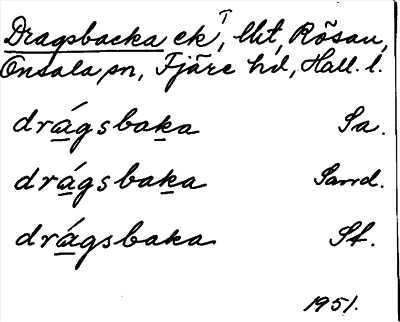 Dragsbacka ek I, lht, Rõsan,
Onsala sn, Fjäre hd, Hall. l.
drágsbaka Sa.
drágsbaka Sand.
drágsbaka St.
1951.